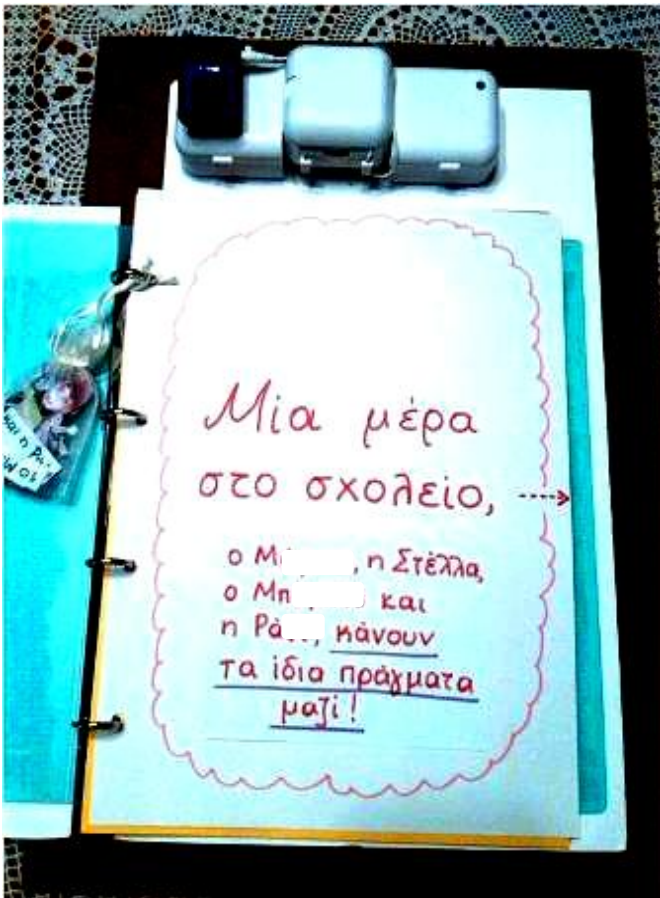 Μία μέρα
στο σχολείο,
ο Μι , η Στέλλα,
ο Μπ και
η Ρά , κάνουν
τα ίδια πράγματα
μαζί!
και η Ρά